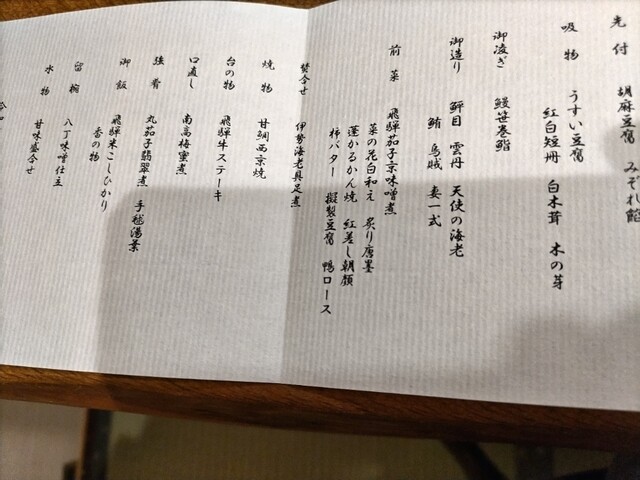 先付 胡麻豆腐 みぞれ餡
吸物 うすい豆腐
紅白短冊 白木茸 木の芽
御凌ぎ 鰻笹巻鮨
御造り 鮃目 雲丹 天使の海老
鮪 烏賊 妻一式
前菜 飛騨茄子京味噌煮
菜の花白和え 炙り唐墨
蓬かるかん焼 紅差し朝顔
柿バター 擬製豆腐 鴨ロース
焚合せ 伊勢海老具足煮
焼物 甘鯛西京焼
台の物 飛騨牛ステーキ
口直し 南高梅蜜煮
強肴 丸茄子翡翠煮 手毬湯葉
御飯 飛騨米こしひかり
香の物
留椀 八丁味噌仕立
水物 甘味盛合せ